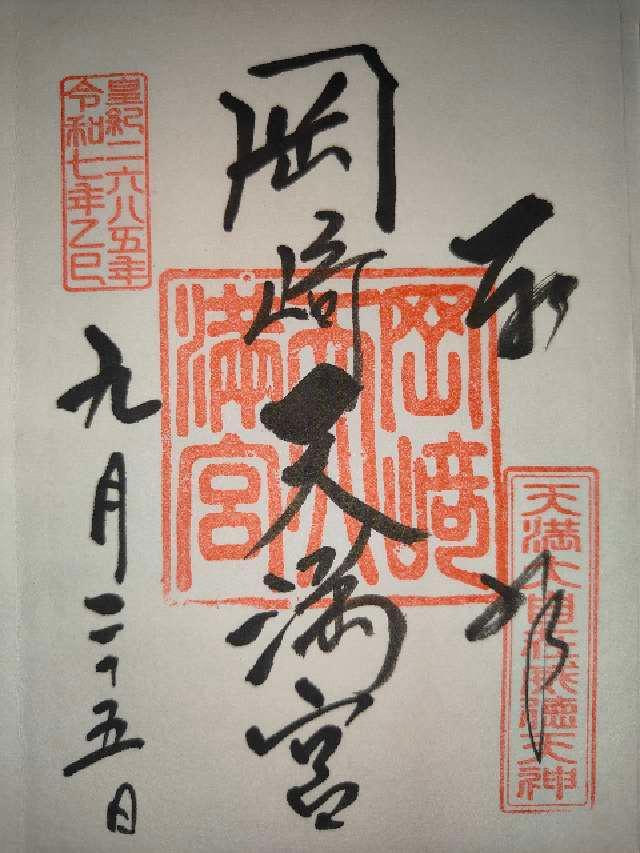 奉拝
天満大自在威徳天神
岡﨑天満宮
岡﨑
天満宮
皇紀二六八五年
令和七年乙巳
九月二十五日